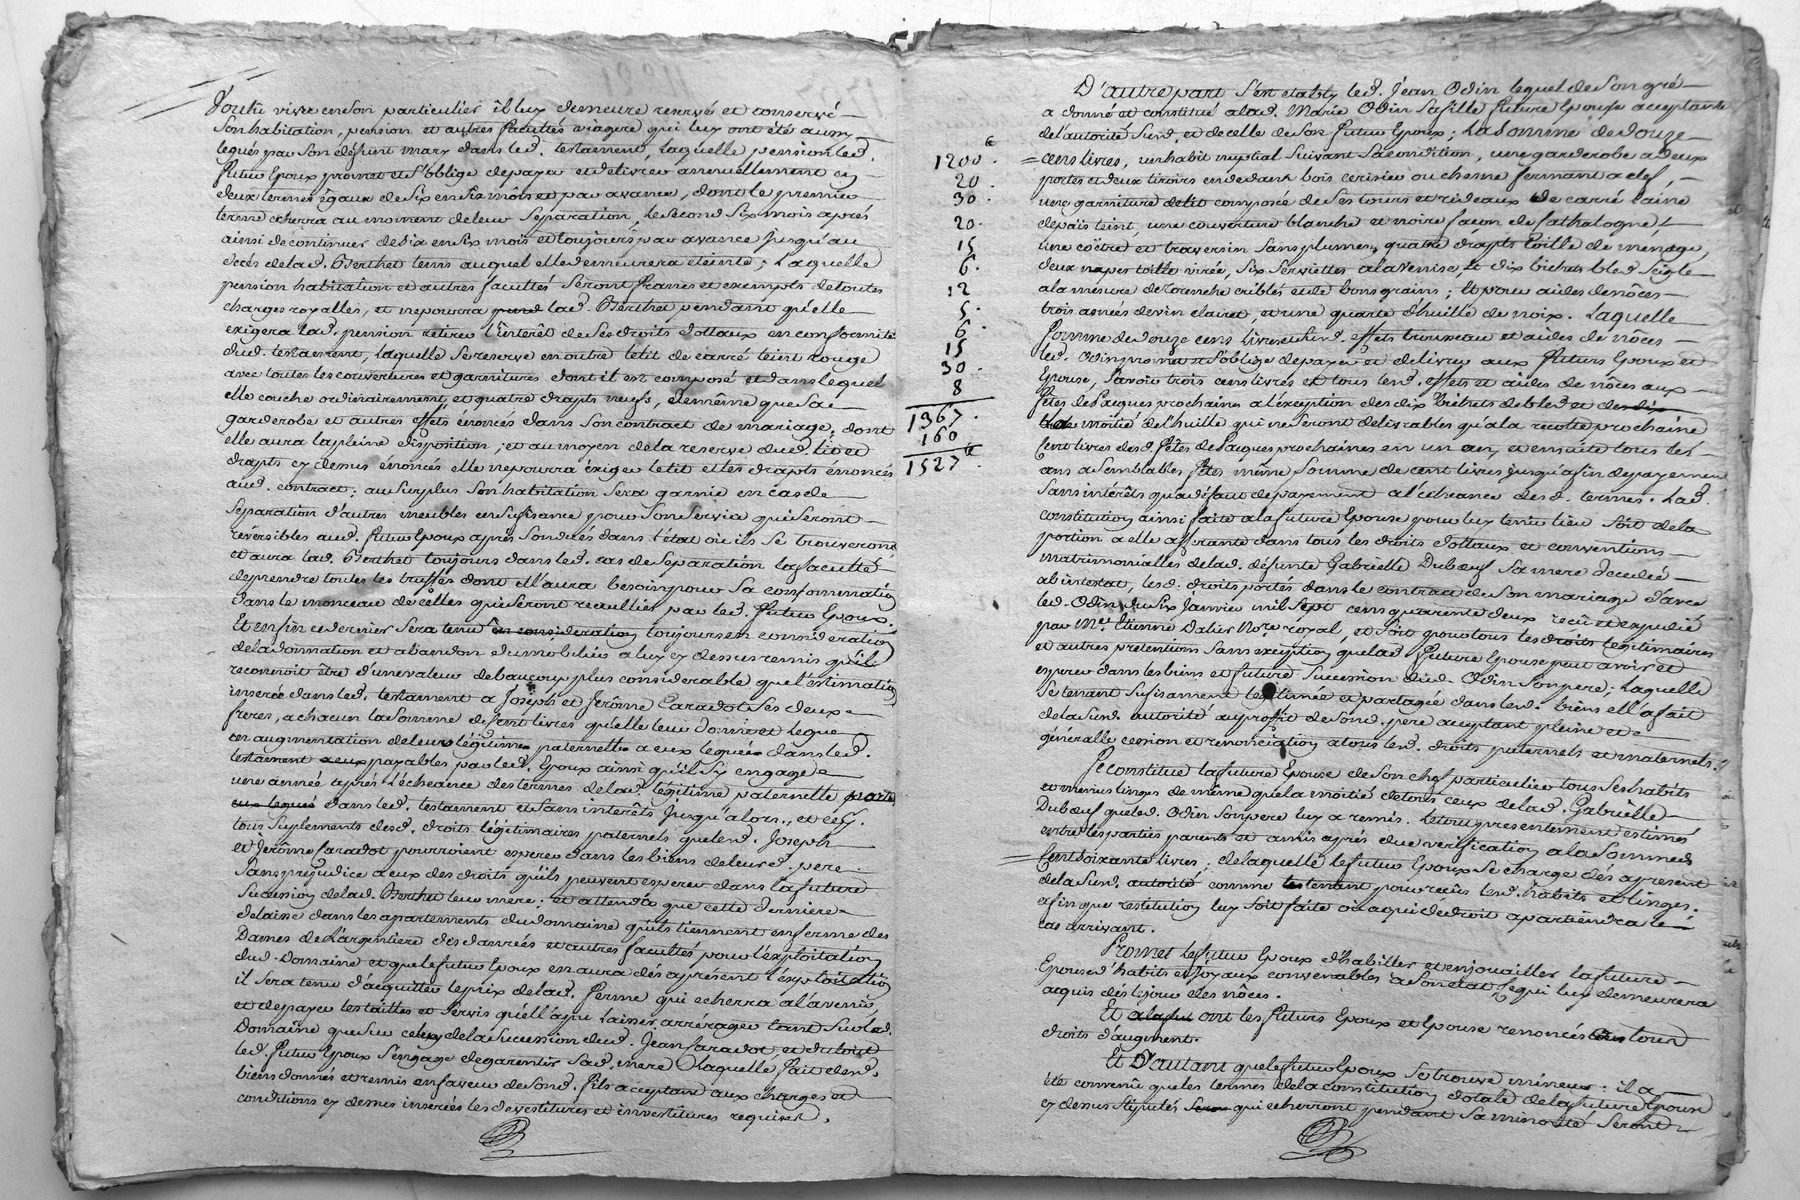 Voulu vivre en son particulier il luy demeure reservé et conservé
son habitation, pension et autres facultés viagere qui luy ont été aussy
legués par son défunt mary dans led. testament, laquelle pension led.
futur Epoux promet et s'oblige de payer et delivrer annuellement en
deux termes égaux de six en six mois et par avance, dont le premier
terme echerra au moment de leur separation, le second six mois aprés
ainsi de continuer de six en six mois et toujours par avance jusqu'au
décés de lad. Berthet tems auquel elle demeurera eteinte; Laquelle
pension habitation et autres facultés seront franes et exempts de toutes
charges royalles, et ne pourra lad. Berthet pendant qu'elle
exigera lad. pension retirer l'intérêt de ses droits dottaux en conformité
dud. testament, laquelle se reserve en outre le lit de carré teint rouge
avec toutes les couvertures et garnitures dont il est composé et dans lequel
elle couche ordinairement, et quatre drapts neufs, de même que sa
garderobe et autres effets énoncés dans son contract de mariage, dont
elle aura la pleine disposition; et au moyen de la reserve dud. lit et
drapts cy dessus énoncés elle ne pourra exiger le lit et les drapts énoncés
aud. contract; au surplus son habitation sera garnie en cas de
séparation d'autres meubles en sufisance pour son service qui seront
réversibles aud. futur Epoux aprés son décés dans l'état où ils se trouveront
et aura lad. Berthet toujours dans led. cas de separation la faculté
de prendre toutes les truffes dont ell'aura besoin pour sa consommation
dans le monceau de celles qui seront recueillies par led. futur Epoux.
Et enfin ce dernier sera tenu en consideration toujours en consideration
de la donnation et abandon du mobilier a luy cy dessus remis qu'il
reconnoit être d'une valeur de beaucoup plus considerable que l'estimation
inserée dans led. testament a Joseph et Jerôme Faradot ses deux
freres, a chacun la somme de cent livres qu'elle leur donne et legue
en augmentation de leurs légitimes paternelle a eux leguée dans led.
testament a eux payables par led. Epoux ainsi qu'il s'y engage
une année aprés l'échéance des termes de lad. légitime paternelle
eux legués dans led. testament et sans interêts jusqu'alors, et
tous suplements desd. droits légitimaires paternels que led. Joseph
et Jerôme faradot pourroient esperer dans les biens de leurd. pere
sans préjudice a eux des droits qu'ils peuvent esperer dans la future
succession de lad. Berthet leur mere; et attendu que cette derniere
delaisse dans les apartements du domaine qu'ils tiennent en ferme des
Dames de L'argentiere des danreés et autres facultés pour l'exploitation
dud. Domaine et que le futur Epoux en aura dés aprésent l'exploitation
il sera tenu d'acquitter le prix de lad. ferme qui echerra a l'avenir,
et de payer les tailles et servis qu'ell'a pu laisser arrérager tant sur led.
Domaine que sur celuy de la succession dud. Jean faradot et du tout
led. futur Epoux s'engage de garentir sad. mere laquelle fait desd.
biens donnés et remis en faveur de sond. fils acceptant aux charges et
conditions cy dessus inserées les devestitures et investitures requises.
D'autre part s'est etably led. Jean Odin lequel de son gré
a donné et constitué a lad. Marie Odin sa fille future Epouse acceptante
de l'autorité susd. et de celle de son futur Epoux; La somme de douze
cens livres, un habit nuptial suivant sa condition, une garderobe a deux
portes et deux tiroirs en dedans bois cerisier ou chesne fermant a clef,
une garniture de lit composé de ses tours et rideaux de carré laine
de païs teint, une couverture blanche et noire façon de Cathalogne,
une coëtre et traversin sans plumes, quatre drapts toille de ménage,
deux napes toille virée, six serviettes a la Venise, et dix bichets bled seigle
a la mesure de criblés et de bons grains; Et pour aides de nôces
trois asnées de vin clairet, et une quarte d'huille de noix. Laquelle
somme de douze cens livres susd. effets trousseau et aides de nôces
led. Odin promet et s'oblige de payer et delivrer aux futurs Epoux et
Epouse, savoir trois cens livres et tous lesd. effets et aides de nôces aux
fêtes de Pacques prochaines a l'exception des dix bichets de bled et des dix
la moitié de l'huille qui ne seront delivrables qu'a la recolte prochaine
Cent livres desd. fêtes de Pacques prochaines en un an, et ensuite tous les
ans a semblables fêtes même somme de cent livres jusqu'a fin de payement
sans intérêts qu'a défaut de payement a l'echeance desd. termes. Lad.
constitution ainsi faite a la future Epouse pour luy tenir lieu soit de la
portion a elle afferante dans tous les droits dottaux et conventions
matrimonialles de lad. défunte Gabrielle Dubœuf sa mere decedée
ab intestat, lesd. droits portés dans le contract de son mariage d'avec
led. Odin du six janvier mil sept cens quarente deux recû et expedié
par Me. Etienne Dalier Nore. royal, et soit pour tous les droits légitimaires
et autres pretentions sans exception que lad. future Epouse peut avoir et
esperer dans les biens et future succession dud. Odin son pere; Laquelle
se tenant sufisament legitimée et partagée dans lesd. biens ell'a fait
de la susd. autorité au proffit de sond. pere acceptant pleine et
généralle cession et renonciation a tous lesd. droits paternels et maternels.
Se constitue la future Epouse de son chef particulier tous ses habits
et menus linges de même que la moitié de tous ceux de lad. Gabrielle
Dubœuf que led. Odin son pere luy a remis. Le tout presentement estimés
entre les parties parents et amis aprés due verification a la somme de
Cent soixante livres; de laquelle le futur Epoux se charge dés apresent
de la susd. autorité comme les tenant pour reçus lesd. habits et linges,
afin que restitution luy soit faite où a qui dédroit apartiendra le
cas arrivant.
Promet le futur Epoux d'habiller et enjouailler la future
Epouse d'habits et joyaux convenables a son etat ce qui luy demeurera
acquis dés le jour des nôces.
Et ont les futurs Epoux et Epouse renoncés tous
droits d'augment.
Et D'autant que le futur Epoux se trouve mineur: il a
été convenu que les termes de la constitution dotale de la future Epouse
cy dessus stipulés qui echerront pendant sa minorité seront
1200.
20.
30.
20.
15
6.
12
5.
6.
15
30.
8
1367.
160
1527.